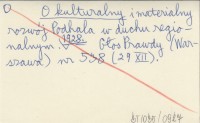 O kulturalny i materialny
rozwój Podhala w duchu regio-
nalnym. 1928. Głos Prawdy (War-
szawa) nr 538 (29 XII).